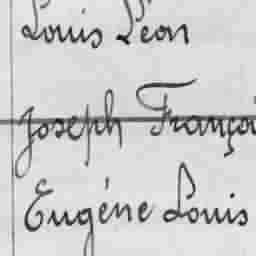 Louis Léon
Joseph Françoi
Eugéne Louis